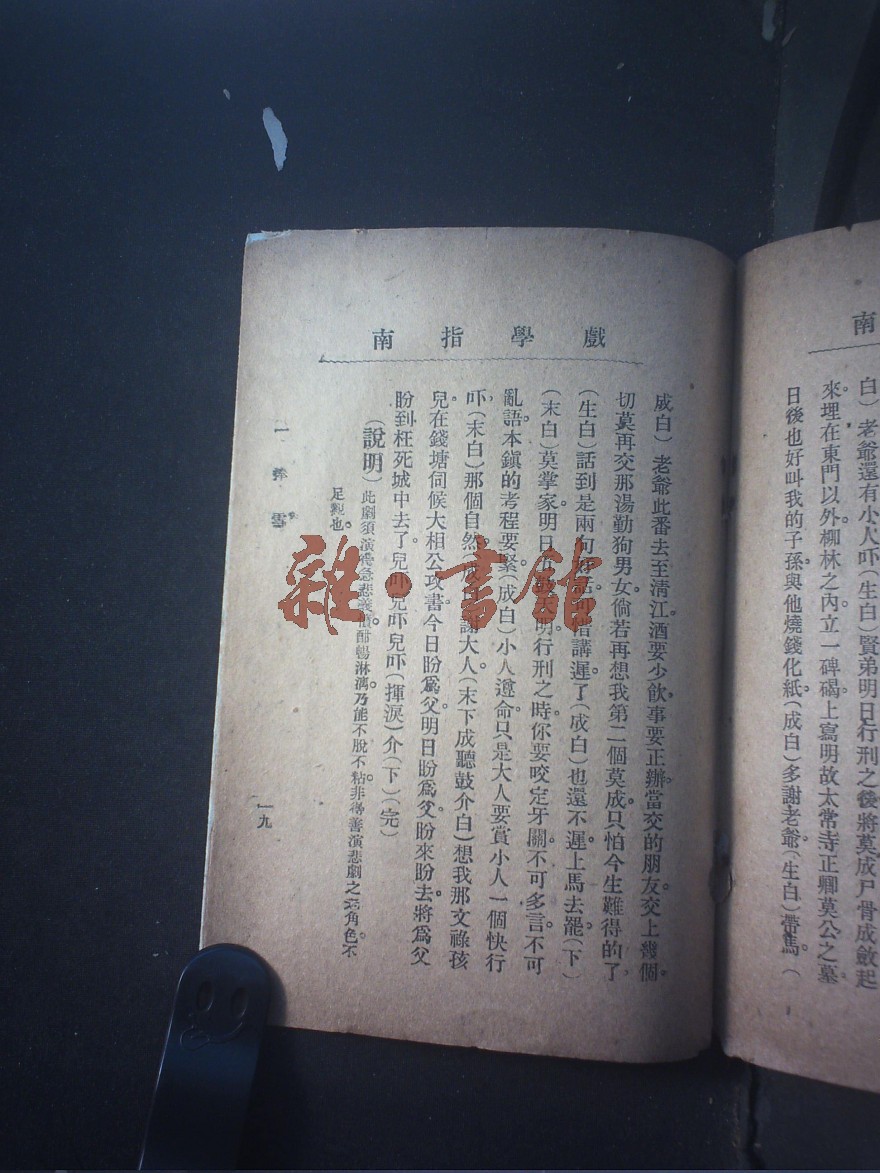 南
白）老爺還有小人吓（生白）賢弟明日行刑之後將莫成尸骨成斂起
來。埋在東門以外。柳林之內。立一碑碣。上寫明故太常寺正卿莫公之墓。
日後也好叫我的子孫。與他燒錢化紙。（成白）多謝老爺（生白）帶馬。（
戲學指南
成白）老爺此番去至清江。酒要少飲。事要正辦。當交的朋友。交上幾個。
切莫再交那湯勤狗男女。倘若再想我第二個莫成。只怕今生難得的了。
（生白）話到是兩句好話。可惜講遲了（成白）也還不遲。上馬去罷（下）
（末白）莫掌家明日 明。行刑之時。你要咬定牙關。不可多言。不可
亂語。本鎮的考程要緊（成白）小人遵命。只是大人要賞小人一個快行
吓。（末白）那個自然（成 謝大人。（末下成聽鼓介白）想我那文祿孩
兒。在錢塘伺候大相公攻書。今日盼爲父。明日盼爲父。盼來盼去。將爲父
盼到枉死城中去了。兒吓兒吓兒吓（揮淚）介（下）（完）
（說明）此劇須演 急悲 酣暢淋漓。乃能不脫不粘。非得善演悲劇之 角色。不
足觀也。
一捧雪
一九
雜·書館